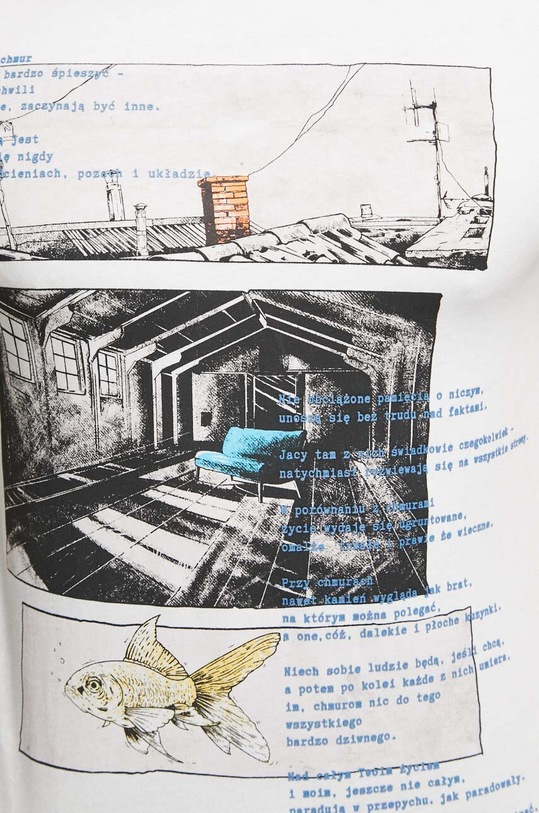 chmur
bardzo śpieszyć -
chwili
e, zaczynają być inne.
ą jest
ię nigdy
cieniach, pozach i układzie.
Nie obciążone pamięcią o niczym,
unoszą się bez trudu nad faktami.
Jacy tam z nich świadkowie czegokolwiek -
natychmiast rozwiewają się na wszystkie strony.
W porównaniu z chmurami
życie wydaje się ugruntowane,
omalże trwałe i prawie że wieczne.
Przy chmurach
nawet kamień wygląda jak brat,
na którym można polegać,
a one, cóż, dalekie i płoche kuzynki.
Niech sobie ludzie będą, jeśli chcą,
a potem po kolei każde z nich umiera,
im, chmurom nic do tego
wszystkiego
bardzo dziwnego.
Nad całym Twoim życiem
i moim, jeszcze nie całym,
paradują w przepychu, jak paradowały.